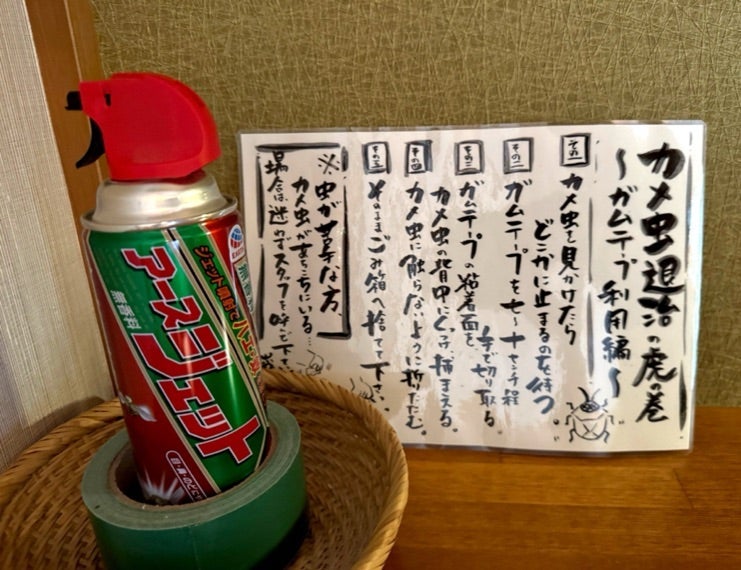 カメ虫退治の虎の巻
〜ガムテープ利用編〜
その一
カメ虫を見かけたら
どこかに止まるのを待つ
その二
ガムテープを七〜十センチ程
手で切り取る
その三
ガムテープの粘着面を
カメ虫の背中にくっつけ、捕まえる。
その四
カメ虫に触らないように折りたたむ。
その五
そのままごみ箱へ捨てて下さい。
※虫が苦手な方、
カメ虫があちこちにいる…
場合は迷わずスタッフを呼んで下さい
アースジェット
無香料
ジェット噴射で